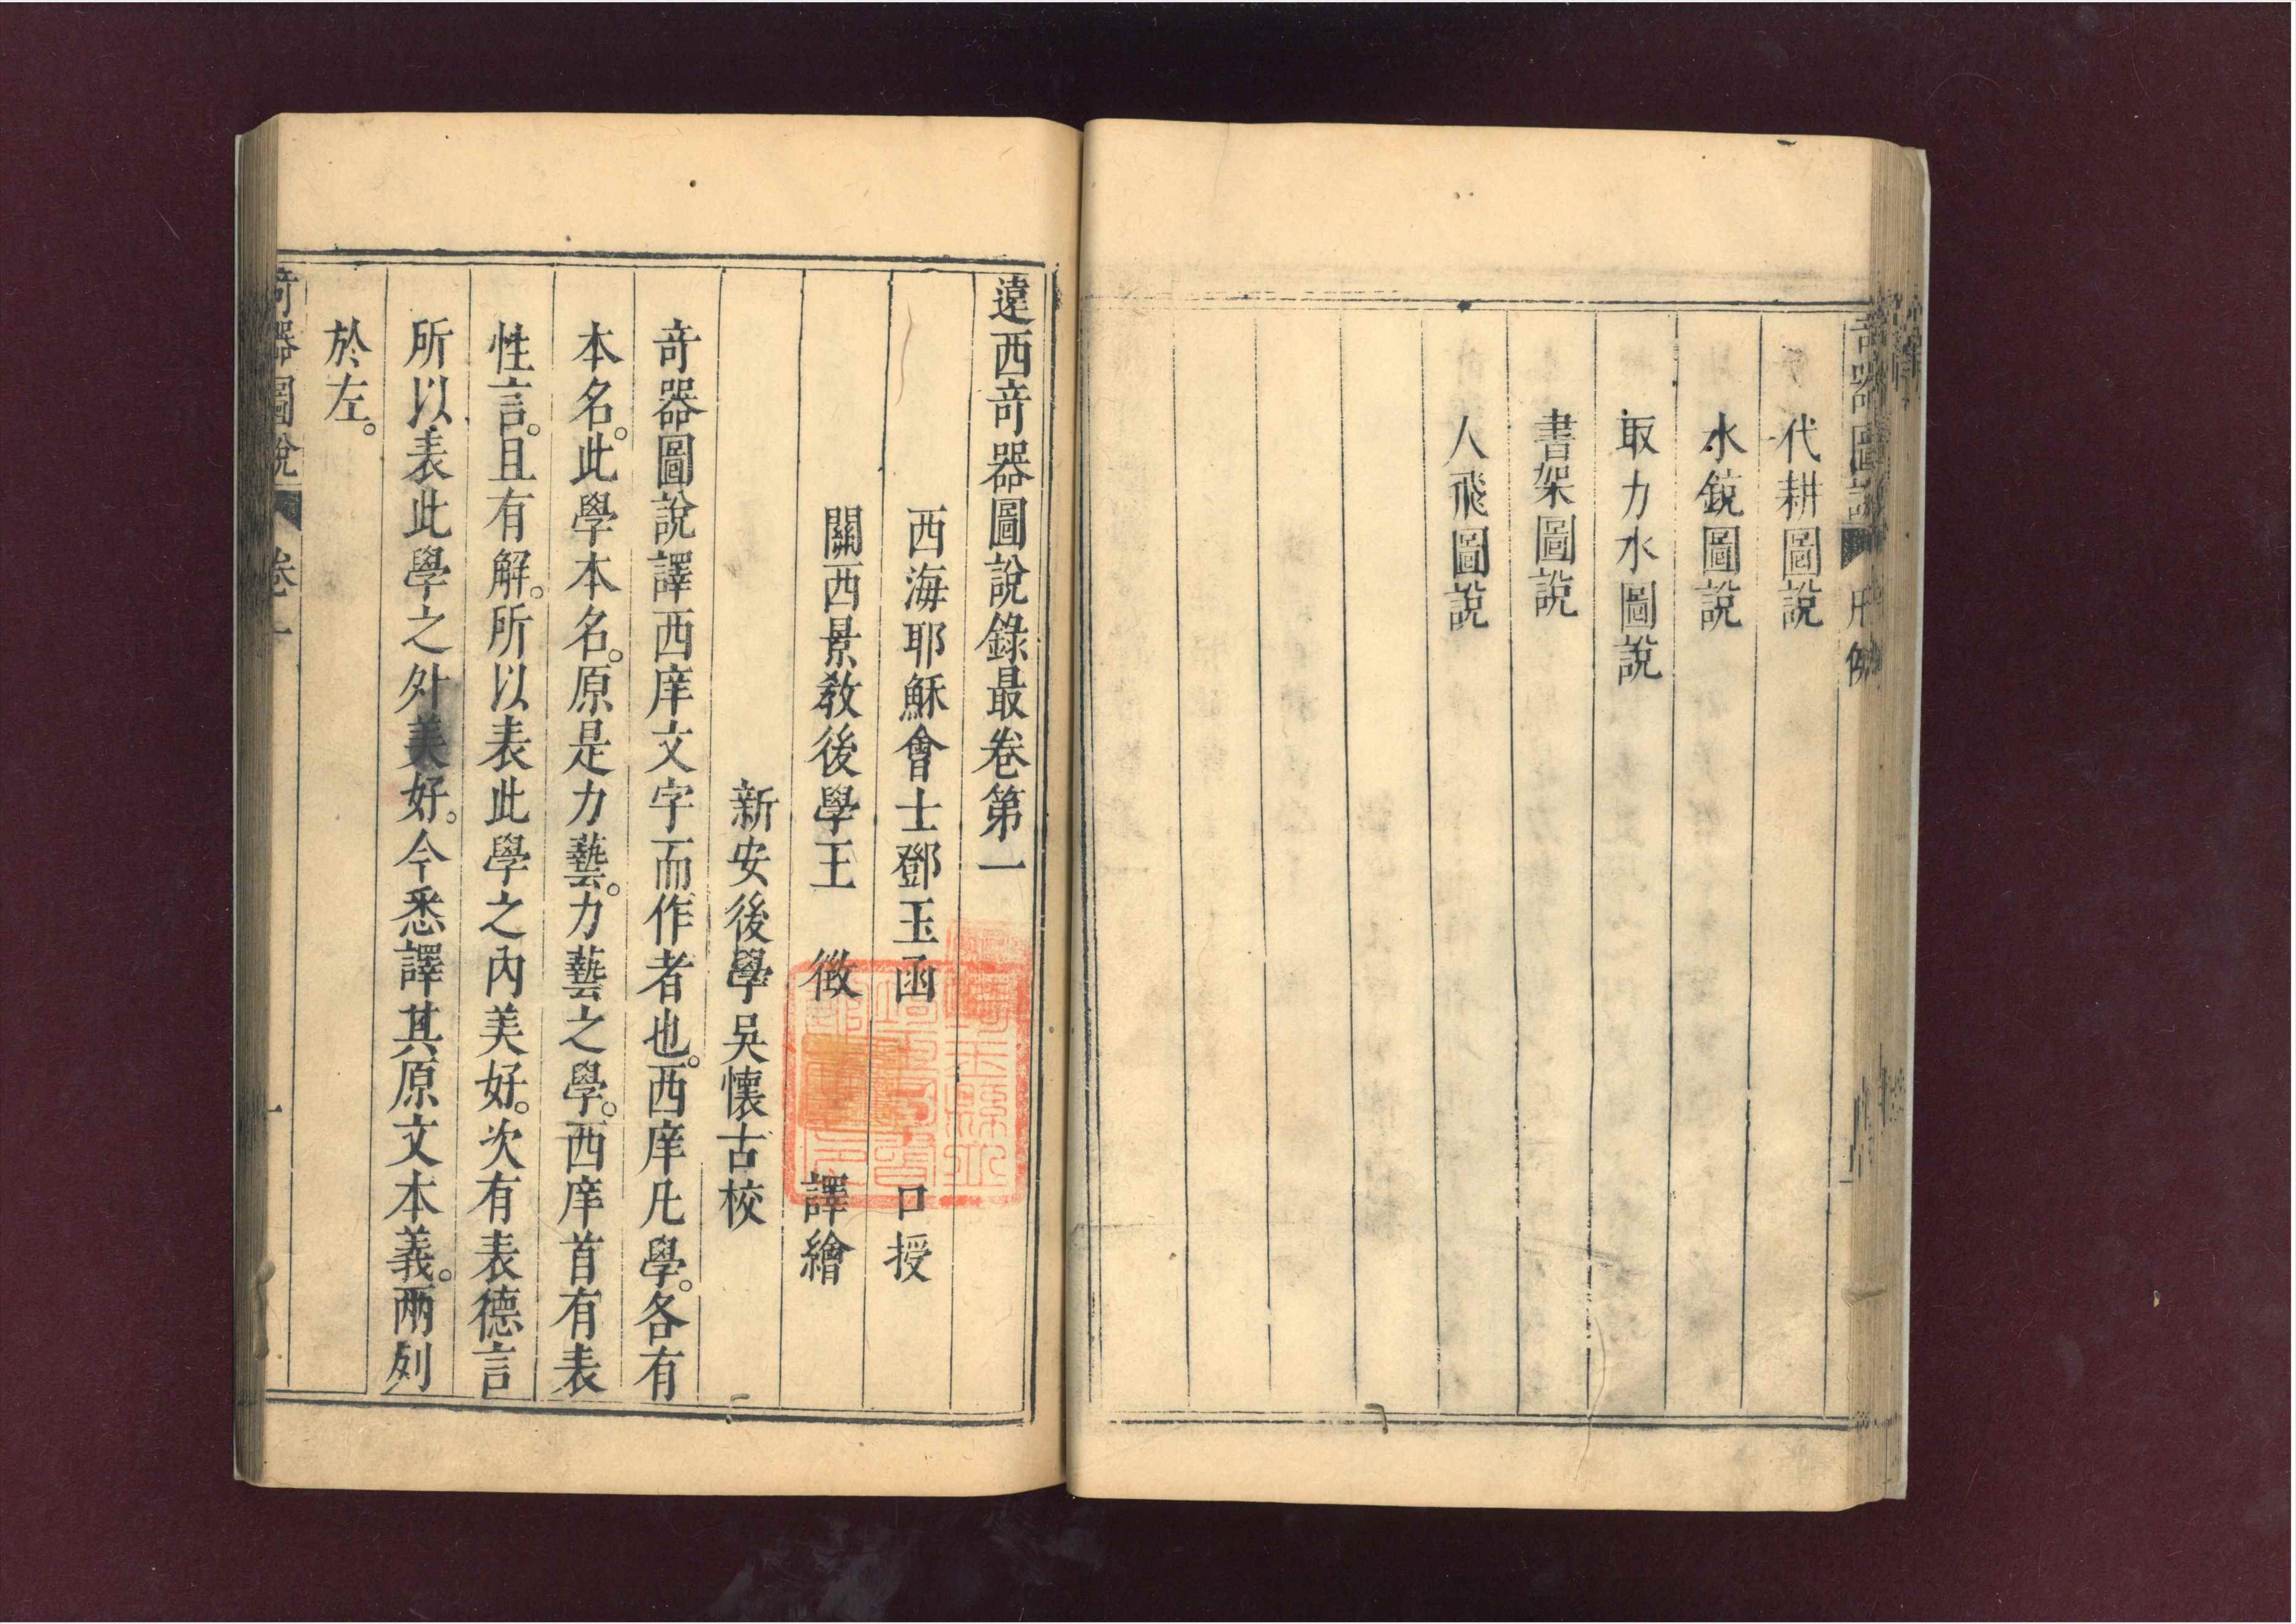 代耕圖說
水鏡圖說
取力水圖說
書架圖說
人飛圖說
遠西奇器圖說錄最卷第一
西海耶穌會士鄧玉函 口授
關西景教後學王 徵 譯繪
新安後學吳懷古校
奇器圖說譯西庠文字而作者也。西庠凡學。各有
本名。此學本名。原是力藝。力藝之學。西庠首有表
性言。且有解。所以表此學之內美好。次有表德言
所以表此學之外美好。今悉譯其原文本義。兩列
於左。
奇器圖說 卷一 一